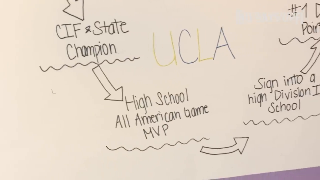 CIF & State
Champion
UCLA
#1
Poin
High School
All American Game
MVP
Sign into a
high Division I
School